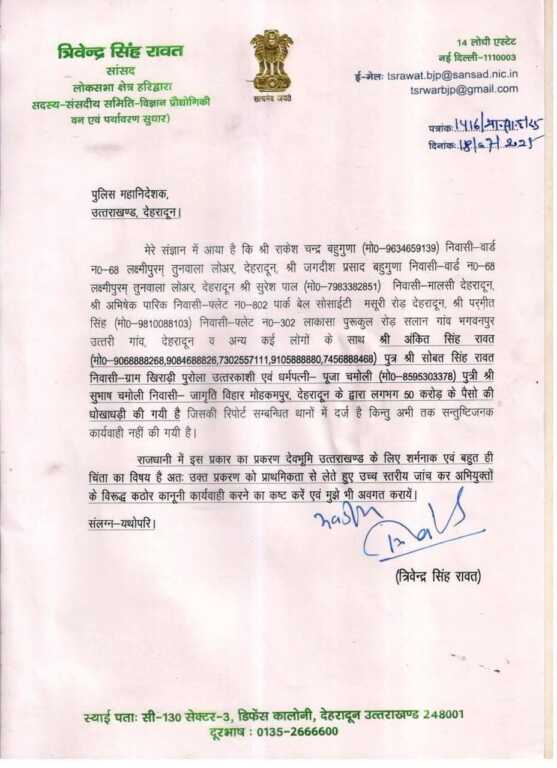 त्रिवेन्द्र सिंह रावत
सांसद
लोकसभा क्षेत्र हरिद्वारा
सदस्य–संसदीय समिति–विज्ञान प्रौद्योगिकी
वन एवं पर्यावरण सुधार)
सत्यमेव जयते
14 लोधी एस्टेट
नई दिल्ली–1110003
ई–मेलः tsrawat.bjp@sansad.nic.in
tsrwarbjp@gmail.com
पत्रांकः 1416
दिनांकः 18/07/2025
पुलिस महानिदेशक,
उत्तराखण्ड, देहरादून।
मेरे संज्ञान में आया है कि श्री राकेश चन्द्र बहुगुणा (मो0–9634659139) निवासी–वार्ड
न0–68 लक्ष्मीपुरम् तुनवाला लोअर, देहरादून, श्री जगदीश प्रसाद बहुगुणा निवासी–वार्ड न0–68
लक्ष्मीपुरम् तुनवाला लोअर, देहरादून श्री सुरेश पाल (मो0–7983382851) निवासी–मालसी देहरादून,
श्री अभिषेक पारिक निवासी–फ्लेट न0–802 पार्क बेल सोसाईटी मसूरी रोड देहरादून, श्री परमीत
सिंह (मो0–9810088103) निवासी–फ्लेट न0–302 लाकासा पुरूकुल रोड सलान गांव भगवनपुर
उत्तरी गांव, देहरादून व अन्य कई लोगों के साथ श्री अंकित सिंह रावत
(मो0–9068888268,9084688826,7302557111,9105888880,7456888468) पुत्र श्री सोबत सिंह रावत
निवासी–ग्राम खिराड़ी पुरोला उत्तरकाशी एवं धर्मपत्नी– पूजा चमोली (मो0–8595303378) पुत्री श्री
सुभाष चमोली निवासी– जागृति विहार मोहकमपुर, देहरादून के द्वारा लगभग 50 करोड़ के पैसो की
धोखाधड़ी की गयी है जिसकी रिपोर्ट सम्बन्धित थानों में दर्ज है किन्तु अभी तक सन्तुष्टिजनक
कार्यवाही नहीं की गयी है।
राजधानी में इस प्रकार का प्रकरण देवभूमि उत्तराखण्ड के लिए शर्मनाक एवं बहुत ही
चिंता का विषय है अतः उक्त प्रकरण को प्राथमिकता से लेते हुए उच्च स्तरीय जांच कर अभियुक्तों
के विरूद्ध कठोर कानूनी कार्यवाही करने का कष्ट करें एवं मुझे भी अवगत करायें।
संलग्न–यथोपरि।
(त्रिवेन्द्र सिंह रावत)
स्थाई पताः सी–130 सेक्टर–3, डिफेंस कालोनी, देहरादून उत्तराखण्ड 248001
दूरभाष : 0135–2666600